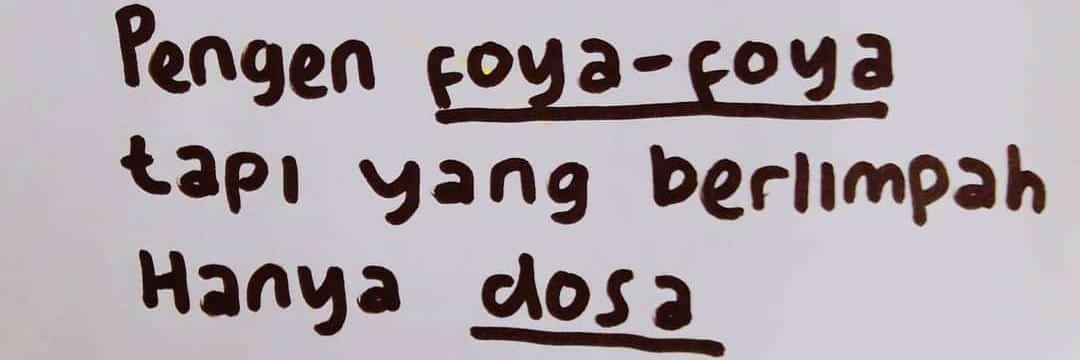 Pengen foya-foya
tapi yang berlimpah
Hanya dosa